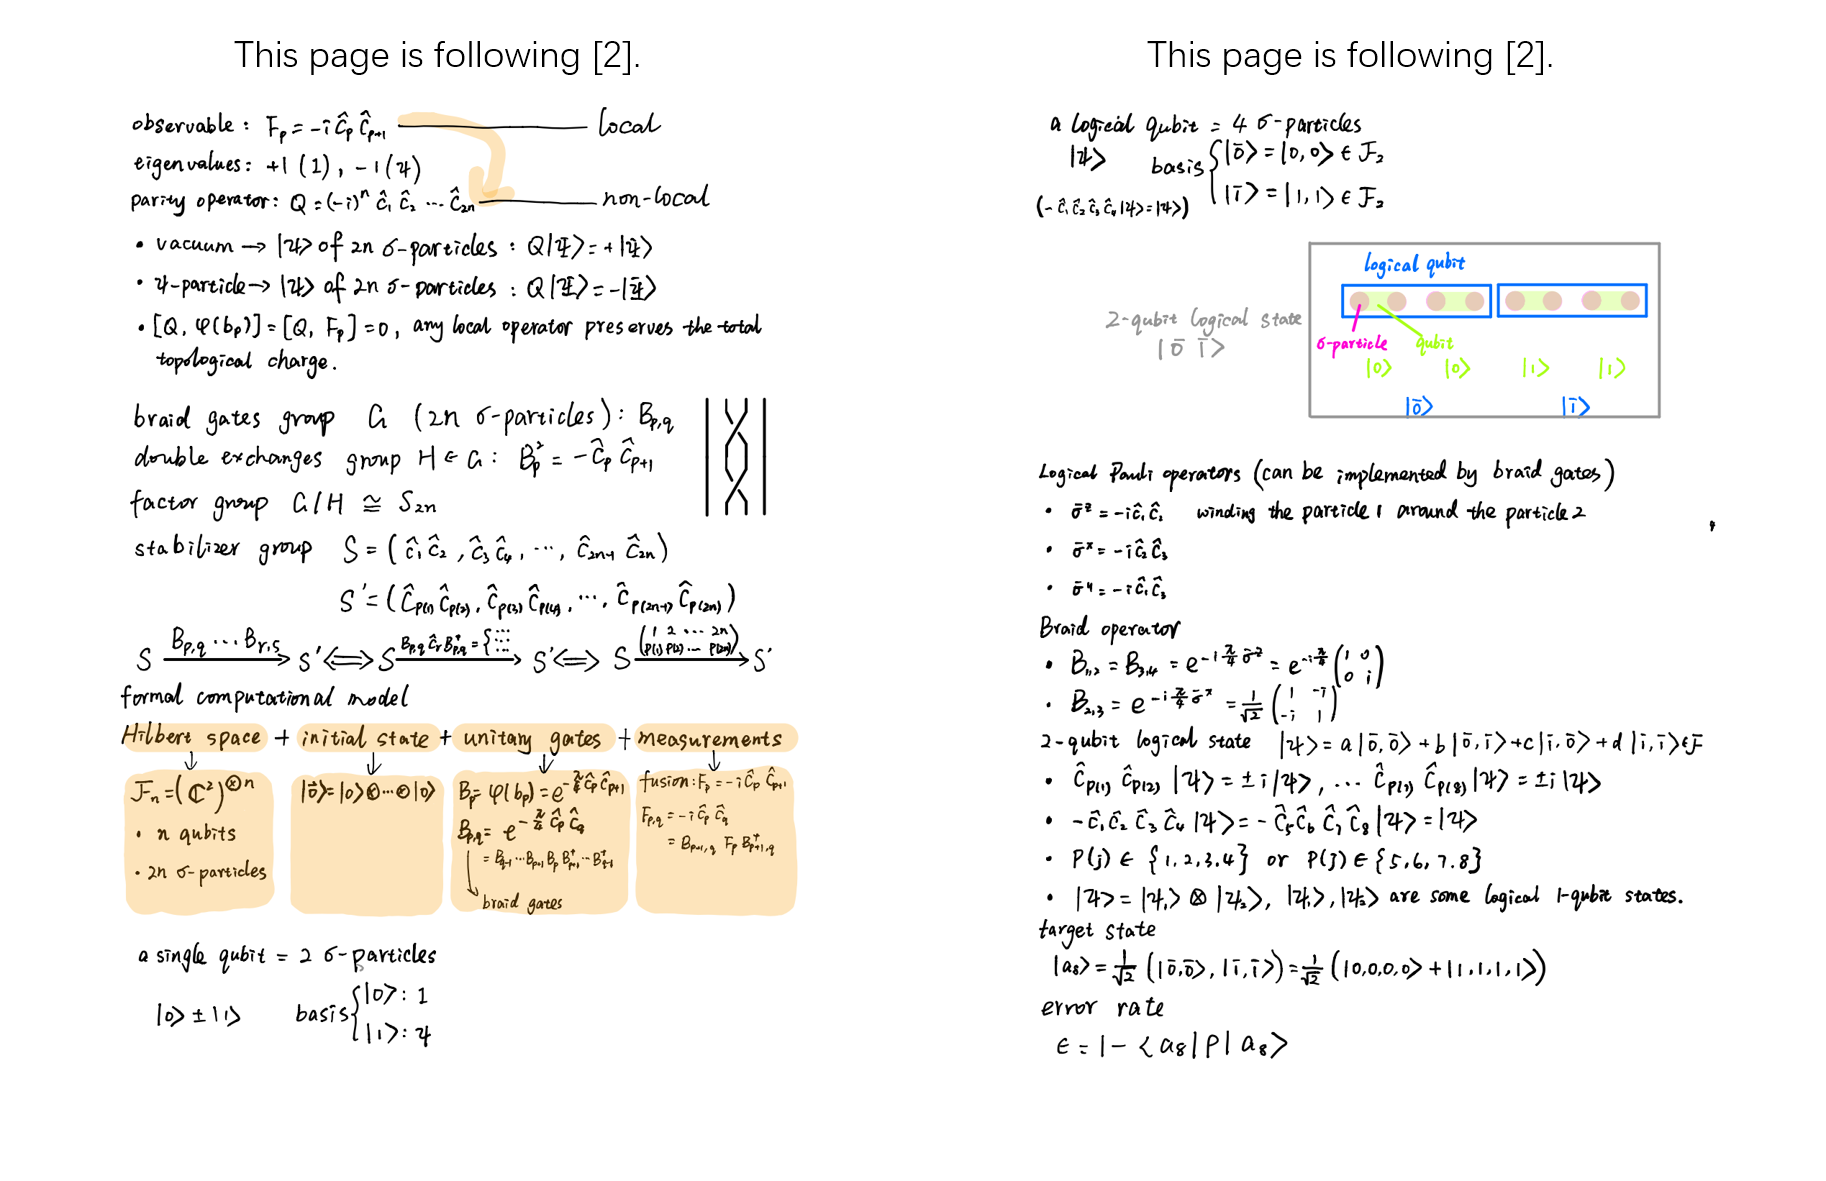 This page is following [2].
observable : F_p = -i ĉ_p ĉ_{p+1} — local
eigenvalues : +1 (1) , -1 (ψ)
parity operator : Q = (-i)^n ĉ_1 ĉ_2 ··· ĉ_{2n} — non-local
• vacuum → |ψ> of 2n σ-particles : Q|Ψ> = +|Ψ>
• ψ-particle → |ψ> of 2n σ-particles : Q|Ψ> = -|Ψ>
• [Q, φ(b_p)] = [Q, F_p] = 0 , any local operator preserves the total
topological charge.
braid gates group G (2n σ-particles) : B_{p,q}
double exchanges group H ∈ G : B_p^2 = -ĉ_p ĉ_{p+1}
factor group G/H ≅ S_{2n}
stabilizer group S = (ĉ_1 ĉ_2 , ĉ_3 ĉ_4 , ··· , ĉ_{2n-1} ĉ_{2n})
S' = (ĉ_{p(1)} ĉ_{p(2)} , ĉ_{p(3)} ĉ_{p(4)} , ··· , ĉ_{p(2n-1)} ĉ_{p(2n)})
S —B_{p,q} ··· B_{r,s}→ S' ⟺ S —B_{p,q} ĉ_r B_{p,q}^† = {⋮⋮⋮→ S' ⟺ S —(1 2 ··· 2n / p(1) p(2) ··· p(2n))→ S'
formal computational model
Hilbert space + initial state + unitary gates + measurements
F_n = (ℂ^2)^{⊗n}
• n qubits
• 2n σ-particles
|0̄> = |0> ⊗ ··· ⊗ |0>
B_p = φ(b_p) = e^{-π/4 ĉ_p ĉ_{p+1}}
B_{p,q} = e^{-π/4 ĉ_p ĉ_q}
= B_{q-1} ··· B_{p+1} B_p B_{p+1}^† ··· B_{q-1}^†
braid gates
fusion : F_p = -i ĉ_p ĉ_{p+1}
F_{p,q} = -i ĉ_p ĉ_q
= B_{p+1,q} F_p B_{p+1,q}^†
a single qubit = 2 σ-particles
|0> ± |1> basis { |0> : 1
|1> : ψ
This page is following [2].
a logical qubit = 4 σ-particles
|ψ> basis { |0̄> = |0,0> ∈ F_2
|1̄> = |1,1> ∈ F_2
(-ĉ_1 ĉ_2 ĉ_3 ĉ_4 |ψ> = |ψ>)
logical qubit
2-qubit logical state
|0̄ 1̄>
σ-particle qubit
|0> |0> |1> |1>
|0̄> |1̄>
Logical Pauli operators (can be implemented by braid gates)
• σ̄^z = -i ĉ_1 ĉ_2 winding the particle 1 around the particle 2
• σ̄^x = -i ĉ_2 ĉ_3
• σ̄^y = -i ĉ_1 ĉ_3
Braid operator
• B_{1,2} = B_{3,4} = e^{-i π/4 σ̄^z} = e^{-i π/4} (1 0 / 0 i)
• B_{2,3} = e^{-i π/4 σ̄^x} = 1/√2 (1 -i / -i 1)
2-qubit logical state |ψ> = a|0̄,0̄> + b|0̄,1̄> + c|1̄,0̄> + d|1̄,1̄> ∈ F
• ĉ_{p(1)} ĉ_{p(2)} |ψ> = ± i |ψ> , ... ĉ_{p(7)} ĉ_{p(8)} |ψ> = ± i |ψ>
• -ĉ_1 ĉ_2 ĉ_3 ĉ_4 |ψ> = -ĉ_5 ĉ_6 ĉ_7 ĉ_8 |ψ> = |ψ>
• P(j) ∈ {1,2,3,4} or P(j) ∈ {5,6,7.8}
• |ψ> = |ψ_1> ⊗ |ψ_2>, |ψ_1>, |ψ_2> are some logical 1-qubit states.
target state
|a_8> = 1/√2 (|0̄,0̄>, |1̄,1̄>) = 1/√2 (|0,0,0,0> + |1,1,1,1>)
error rate
ϵ = 1 - <a_8|ρ|a_8>